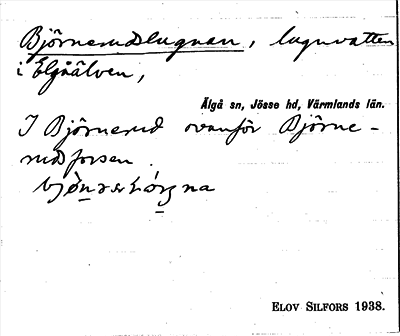 Björnerudslugnan, lugnvatten
i Elgåälven,
Älgå sn, Jösse hd, Värmlands län.
I Björnerud ovanför Björne-
rudforsen.
ELOV SILFORS 1938.